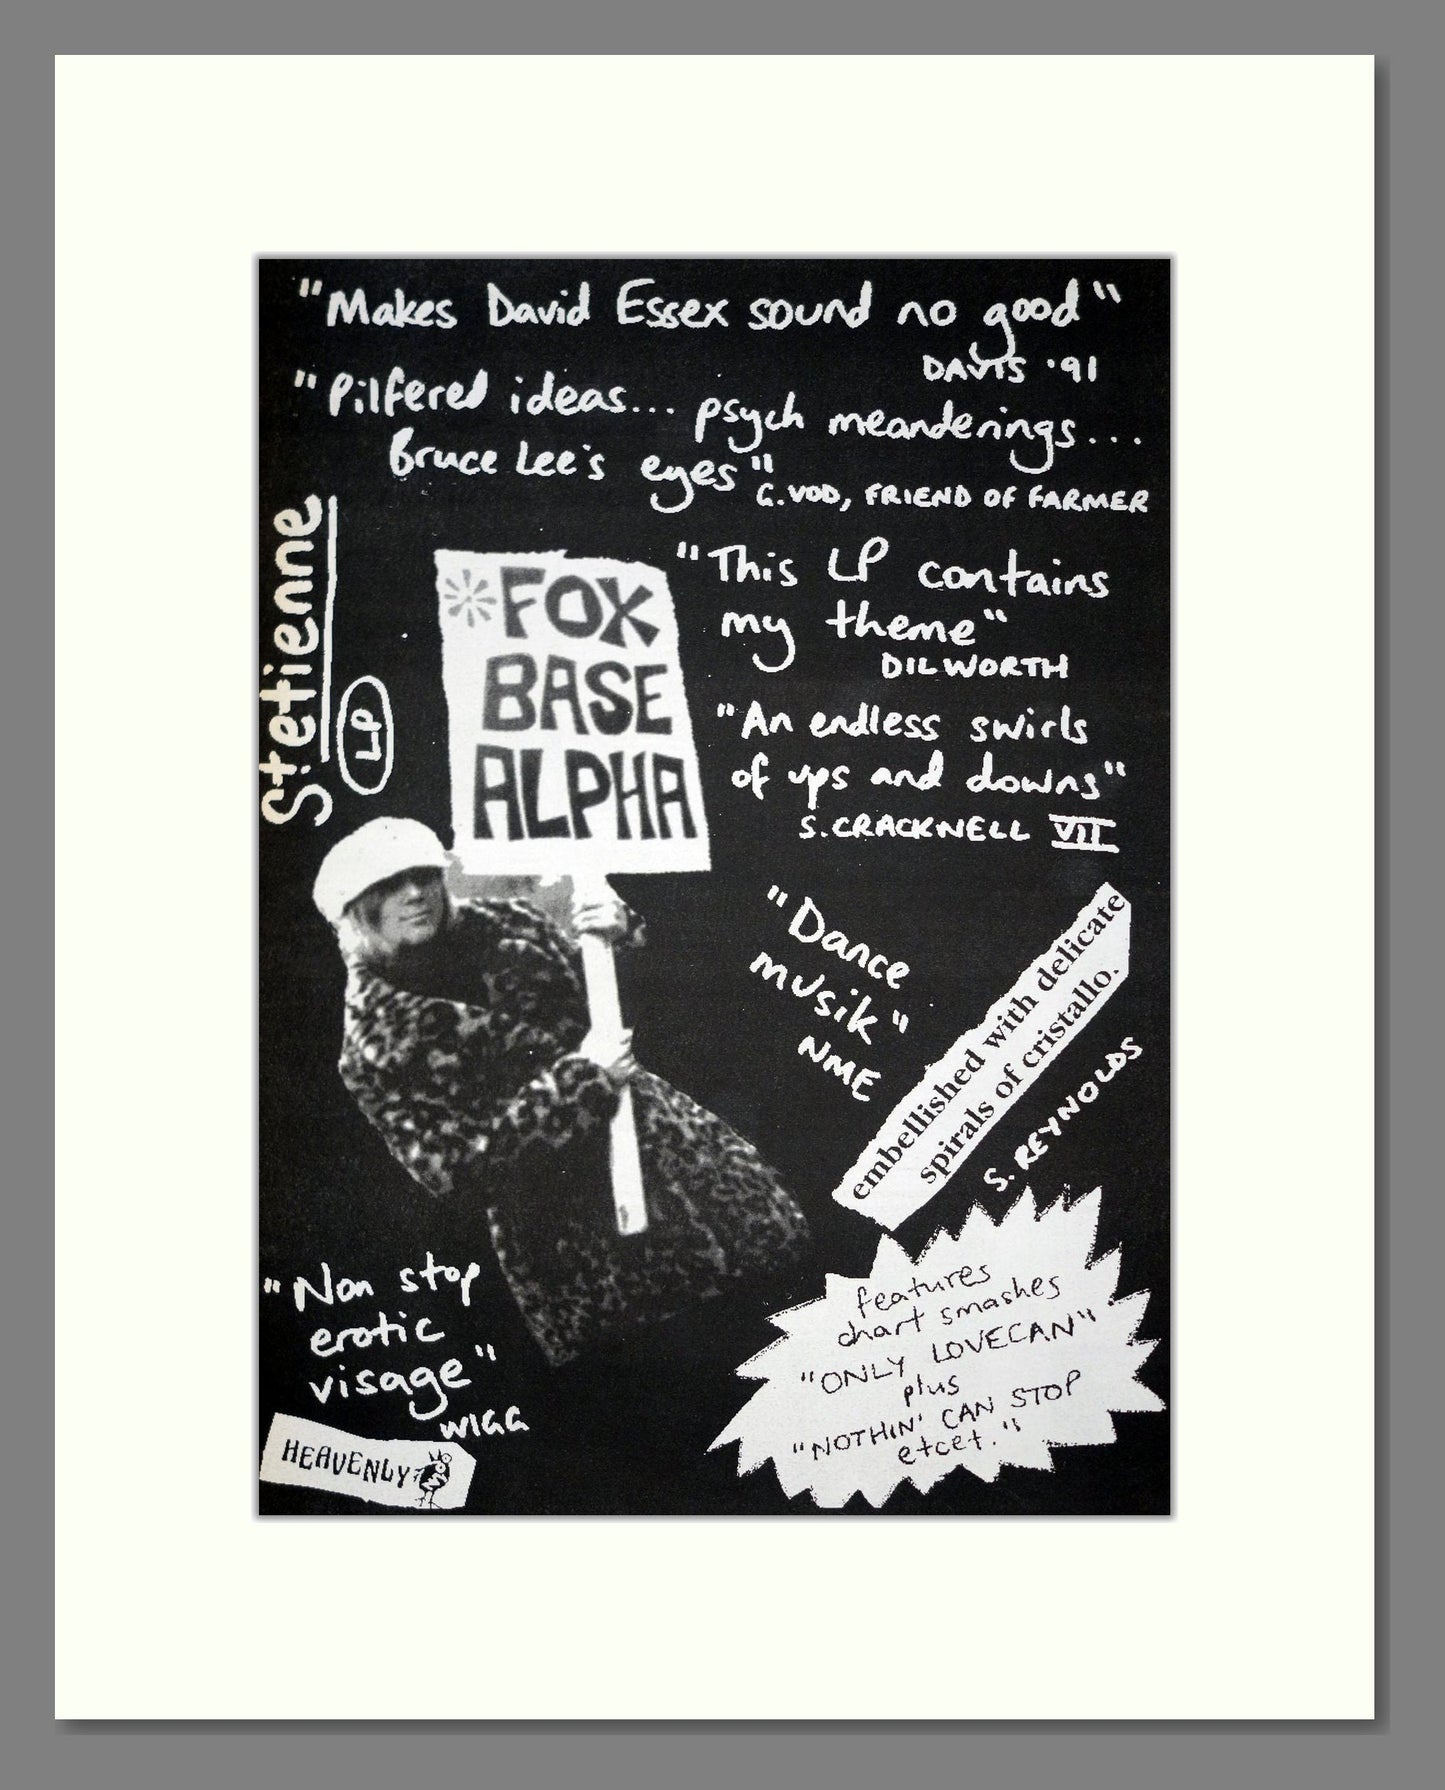 "Makes David Essex sound no good"
DAVIS '91
"Pilfered ideas... psych meanderings...
Bruce Lee's eyes"
G.VOD, FRIEND OF FARMER
St.etienne
LP
*FOX
BASE
ALPHA
"This LP contains
my theme"
DILWORTH
"An endless swirls
of ups and downs"
S.CRACKNELL VII
"Dance
musik"
NME
embellished with delicate
spirals of cristallo.
S. REYNOLDS
"Non stop
erotic
visage"
WIGG
features
chart smashes
"ONLY LOVECAN"
plus
"NOTHIN' CAN STOP
etcet."
HEAVENLY